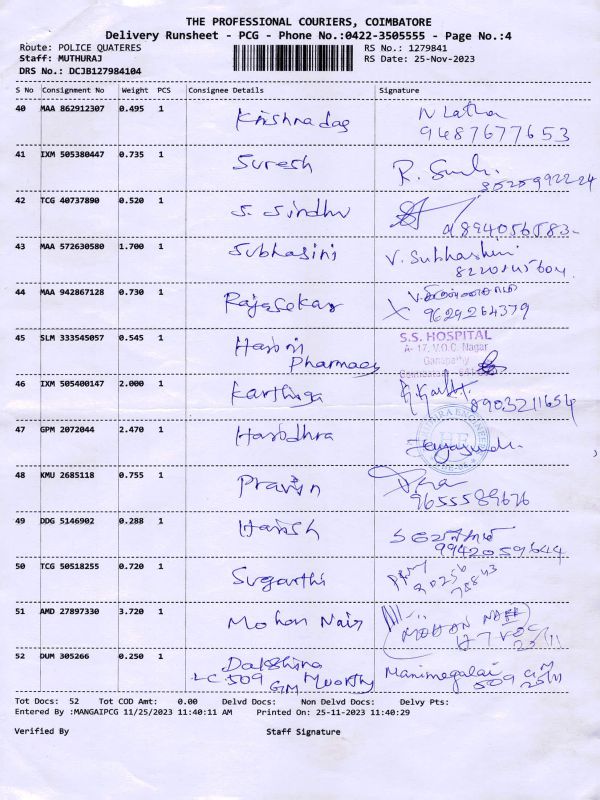 THE PROFESSIONAL COURIERS, COIMBATORE
Delivery Runsheet - PCG - Phone No.:0422-3505555 - Page No.:4
Route: POLICE QUATERES RS No.: 1279841
Staff: MUTHURAJ RS Date: 25-Nov-2023
DRS No.: DCJB127984104
S No Consignment No Weight PCS Consignee Details Signature
40 MAA 862912307 0.495 1 Krishna das N Latha
9487677653
41 IXM 505380447 0.735 1 Suresh R.
42 TCG 40737890 0.520 1 S. Sindhu
43 MAA 572630580 1.700 1 Subhasini V. Subhashini
44 MAA 942867128 0.730 1 Rajasekar
9629264379
45 SLM 333545057 0.545 1 Harini S.S. HOSPITAL
Pharmacy A- 17, V.O.C. Nagar
Ganapathy
46 IXM 505400147 2.000 1 Karthiga
8903211654
47 GPM 2072044 2.470 1 Harodhra
48 KMU 2685118 0.755 1 Pravin
9655589676
49 DDG 5146902 0.288 1 Harish
9942059644
50 TCG 50518255 0.720 1 Suganthi
51 AMD 27897330 3.720 1 Mohan Nair MOHAN NAIR
25/11
52 DUM 305266 0.250 1 Dakshina Manimegalai
LC 509 G.M. Moorthy 509
25/11
Tot Docs: 52 Tot COD Amt: 0.00 Delvd Docs: Non Delvd Docs: Delvy Pts:
Entered By :MANGAIPCG 11/25/2023 11:40:11 AM Printed On: 25-11-2023 11:40:29
Verified By Staff Signature